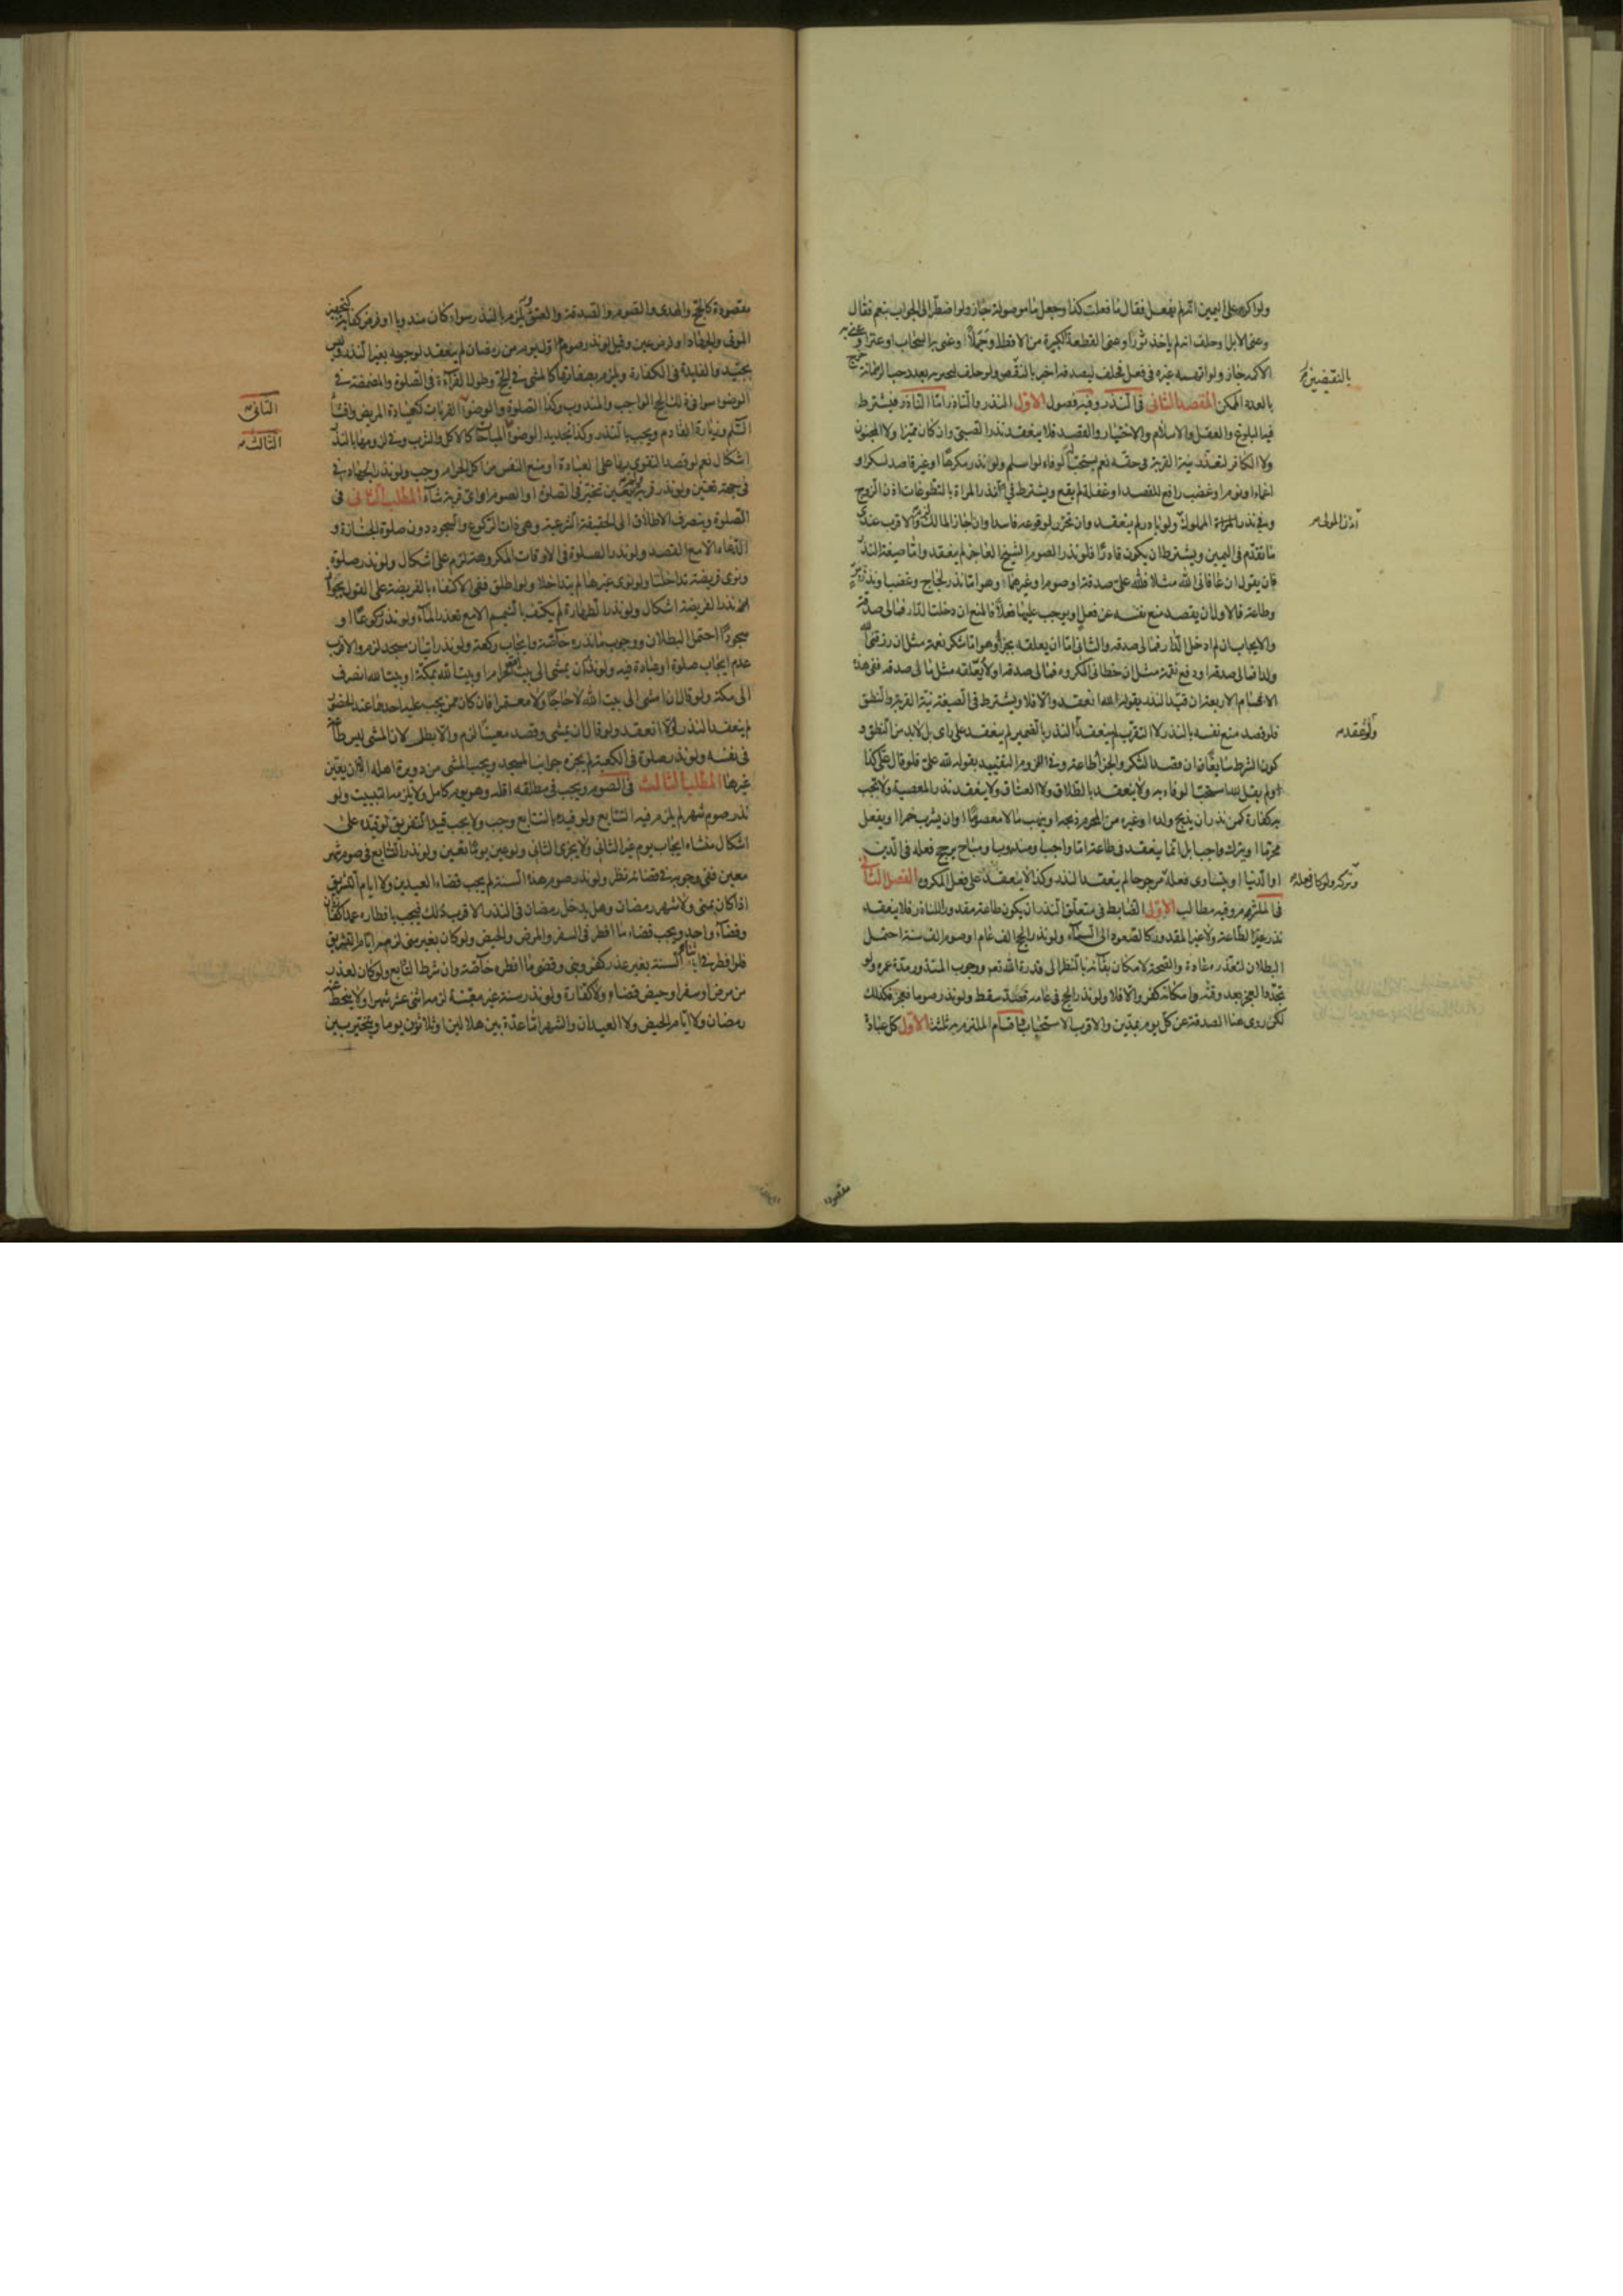 ولو اكره على اليمين انه لم يفعل فقال ما فعلت كذا وجعل ما موصولة جاز ولو اضطر الى الجواب بنعم فقال
وعنى الابل وحلف انه لم ياخذ ثورا وعنى القطعة الكبيرة من الاقط او جملا وعنى به السحاب او عنزا وعنى به
الاكمه جاز ولو اتهمه غيره في فعل فحلف ليصدقنه اخبر بالنقيضين ولو حلف ليخبره بعدد حب الرمانة خرج
بالعدد الممكن المقصد الثانى فى النذر وفيه فصول الاول النذر والناذر اما الناذر فيشترط
فيه البلوغ والعقل والاسلام والاختيار والقصد فلا ينعقد نذر الصبي وان كان مميزا ولا المجنون
ولا الكافر لتعذر نية القربة في حقه نعم يستحب له الوفاء لو اسلم ولو نذر مكرها او غير قاصد لسكر او
اغماء او نوم او غضب رافع للقصد او غفلة لم يقع ويشترط في نذر المراة بالتطوعات اذن الزوج
وفي نذر المملوك ولو بادر لم ينعقد وان تحرر لوقوعه فاسدا وان اجاز المالك والاقرب عندي
ما تقدم فى اليمين ويشترط ان يكون قادرا فلو نذر الصوم الشيخ العاجز لم ينعقد واما صيغة النذر
فان يقول ان عافاني الله مثلا فلله علي صدقة او صوم او غيرهما وهو اما نذر لجاج وغضب او نذر بر
وطاعة فالاول ان يقصد منع نفسه عن فعل او يوجب عليها فعلا فالمنع ان دخلت الدار فمالى صدقة
والايجاب ان لم ادخل الدار فمالى صدقة والثاني اما ان يعلقه بجزاء وهو اما شكر نعمة مثل ان رزقني الله
ولدا فمالى صدقة او دفع نقمة مثل ان خطاني المكروه فمالى صدقة او لا يعلقه مثل مالى صدقة ففي هذه
الاقسام الاربعة ان قيد النذر بقوله لله انعقد والا فلا ويشترط فى الصيغة نية القربة والنطق
فلو قصد منع نفسه بالنذر لا التقرب لم ينعقد النذر بالضمير لم ينعقد على راى بل لابد من النطق و
كون الشرط سايغا ان قصد الشكر والجزاء طاعة وفي اللزوم التقييد بقوله لله علي فلو قال علي كذا
ولم يقل لله استحب الوفاء به ولا ينعقد بالطلاق ولا العتاق ولا ينعقد نذر المعصية ولا يجب
به كفارة كمن نذر ان يذبح ولده او غيره من المحرم ذبحه او ينهب مالا معصوما او ان يشرب خمرا او يفعل
محرما او يترك واجبا بل انما ينعقد فى طاعة اما واجب او مندوب او مباح يرجح فعله فى الدين
او الدنيا او يتساوى فعله مرجوحا لم ينعقد النذر وكذا لا ينعقد على فعل المكروه الفصل الثانى
فى الملتزم وفيه مطالب الاول الضابط في متعلق النذر ان يكون طاعة مقدورا للناذر فلا ينعقد
نذر غير الطاعة ولا غير المقدور كالصعود الى السماء ولو نذر الحج الف عام او صوم الف سنة احتمل
البطلان لتعذره عادة والصحة لامكان بقائه بالنظر الى قدرة الله تعم ووجوب المنذور مدة عمره ولو
تجدد العجز بعد وقته وامكانه كفر والا فلا ولو نذر الحج في عامه فصد سقط ولو نذر صوما فعجز فكذلك
لكن روى هنا الصدقة عن كل يوم بمدين والاقرب الاستحباب واقسام الملتزم به ثلثة الاول كل عبادة
بالنقيضين
اذن المولى
ولو عقد
وتركه ولو كان فعله
مقصودة
مقصودة كالحج والهدى والصوم والصدقة والعتق ويلزم بالنذر سواء كان مندوبا او فرض كفاية كتجهيز
الموتى والجهاد او فرض عين وقيل لو نذر صوم اول يوم من رمضان لم ينعقد لوجوبه بغير النذر وليس
بجيد والفايدة في الكفارة ويلزم بصفاتها كالمشى في الحج وطول القراءة في الصلوة والمضمضة في
الوضوء سواء في ذلك الحج الواجب والمندوب وكذا الصلوة والوضوء القربات كعيادة المريض وافشاء
السلم وزيارة القادم ويجب بالنذر وكذا تجديد الوضوء المباحات كالاكل والشرب وفي لزومها بالنذر
اشكال نعم لو قصد التقوي بها على العبادة او منع النفس من اكل الحرام وجب ولو نذر الجهاد في
فى جهة تعين ولو نذر قربة ولم يعين تخير فى الصلوة او الصوم او اى قربة شاء المطلب الثانى فى
الصلوة وينصرف الاطلاق الى الحقيقة الشرعية وهى ذات الركوع والسجود دون صلوة الجنازة و
الدعاء الا مع القصد ولو نذر الصلوة فى الاوقات المكروهة لزم على اشكال ولو نذر صلوة
ونوى فريضة تداخلتا ولو نوى غيرها لم يتداخلا ولو اطلق ففي الاكتفاء بالفريضة على القول بجواز
نذر الفريضة اشكال ولو نذر الطهارة لم يكتف بالتيمم الا مع تعذر الماء ولو نذر ركوعا او
سجودا احتمل البطلان ووجوب ما نذره خاصة وايجاب ركعة ولو نذر اتيان مسجد لزم والاقرب
عدم ايجاب صلوة او عبادة فيه ولو نذر ان يمشى الى بيت الله الحرام او بيت الله بمكة او بيت الله انصرف
الى مكة ولو قال ان امشى الى بيت الله لا حاجا ولا معتمرا فان كان ممن يجب عليه احدهما عند الحضور
لم ينعقد النذر والا انعقد ولو قال ان يمشى وقصد معينا لزم والا بطل لان المشى ليس طاعة
فى نفسه ولو نذر صلوة فى الكعبة لم يجزه جوانب المسجد ويجب المشى من دويرة اهله الا ان يعين
غيرها المطلب الثالث فى الصوم ويجب فى مطلقه اقله وهو يوم كامل ولا يلزمه التبييت ولو
نذر صوم شهر لم يلزم فيه التتابع ولو قيده بالتتابع وجب ولا يجب قيد التفريق لو قيده على
اشكال منشاه ايجاب يوم غير الثاني ولا يجزى الثاني ولو عين يوما تعين ولو نذر التتابع في صوم شهر
معين ففي وجوبه في قضائه نظر ولو نذر صوم هذه السنة لم يجب قضاء العيدين ولا ايام التشريق
اذا كان بمنى ولا شهر رمضان وهل يدخل رمضان فى النذر الاقرب ذلك فيجب بافطاره عمدا كفارتان
وقضاء واحد ويجب قضاء ما افطر فى السفر والمرض والحيض ولو كان بغير منى لزمه ايام التشريق
فلو افطر في اثناء السنة بغير عذر كفر وبنى وقضى ما افطره خاصة وان شرط التتابع ولو كان لعذر
من مرض او سفر او حيض قضاه ولا كفارة ولو نذر سنة غير معينة لزمه اثنى عشر شهرا ولا ينحط عنه
رمضان ولا ايام الحيض ولا العيدان والشهر اما عدة بين هلالين او ثلاثون يوما ويتخير بين
الثانى
الثالث